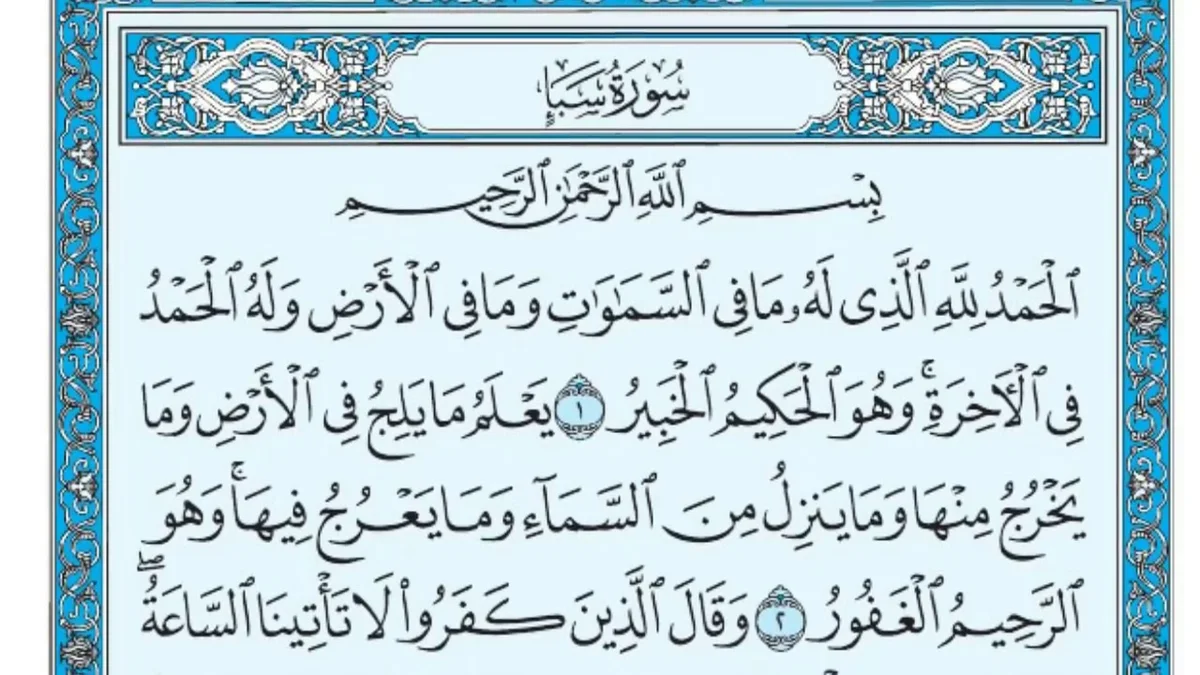 سُورَةُ سَبَإٍ
بِسْمِ ٱللَّهِ ٱلرَّحْمَٰنِ ٱلرَّحِيمِ
ٱلْحَمْدُ لِلَّهِ ٱلَّذِى لَهُۥ مَا فِى ٱلسَّمَٰوَٰتِ وَمَا فِى ٱلْأَرْضِ وَلَهُ ٱلْحَمْدُ
فِى ٱلْأَخِرَةِۚ وَهُوَ ٱلْحَكِيمُ ٱلْخَبِيرُ ١ يَعْلَمُ مَا يَلِجُ فِى ٱلْأَرْضِ وَمَا
يَخْرُجُ مِنْهَا وَمَا يَنزِلُ مِنَ ٱلسَّمَآءِ وَمَا يَعْرُجُ فِيهَاۚ وَهُوَ
ٱلرَّحِيمُ ٱلْغَفُورُ ٢ وَقَالَ ٱلَّذِينَ كَفَرُوا۟ لَا تَأْتِينَا ٱلسَّاعَةُۖ